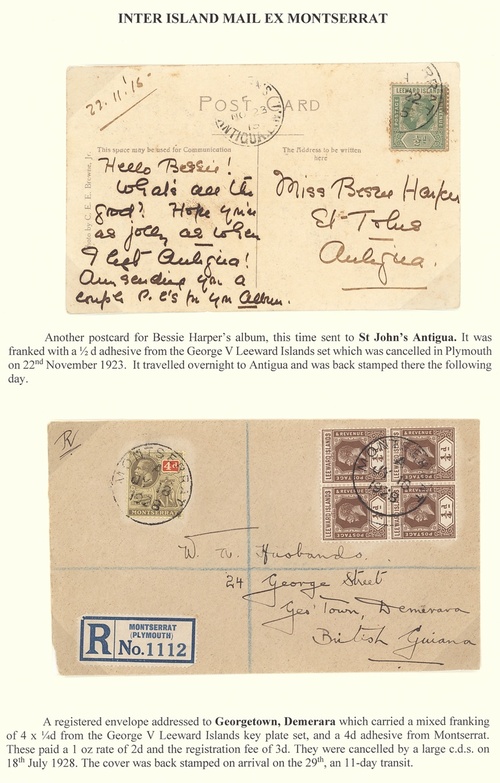 INTER ISLAND MAIL EX MONTSERRAT
22.11.15-
POST CARD
This space may be used for Communication
The Address to be written
here
ANTIGUA
LEEWARD ISLANDS
Photo by C. E. E. Browne, Jr.
Hello Bessie!
What's all the
good? Hope you're
as jolly as when
I left Antigua!
Am sending you a
couple P. C's for your Album.
Miss Bessie Harper
St Johns
Antigua.
Another postcard for Bessie Harper's album, this time sent to St John's Antigua. It was
franked with a ½ d adhesive from the George V Leeward Islands set which was cancelled in Plymouth
on 22nd November 1923. It travelled overnight to Antigua and was back stamped there the following
day.
R
MONTSERRAT
4d
MONTSERRAT
POSTAGE & REVENUE
LEEWARD ISLANDS
W. W. Husbands.
24 George Street
Geo' Town, Demerara
British Guiana
R
MONTSERRAT
(PLYMOUTH)
No. 1112
A registered envelope addressed to Georgetown, Demerara which carried a mixed franking
of 4 x ¼d from the George V Leeward Islands key plate set, and a 4d adhesive from Montserrat.
These paid a 1 oz rate of 2d and the registration fee of 3d. They were cancelled by a large c.d.s. on
18th July 1928. The cover was back stamped on arrival on the 29th, an 11-day transit.